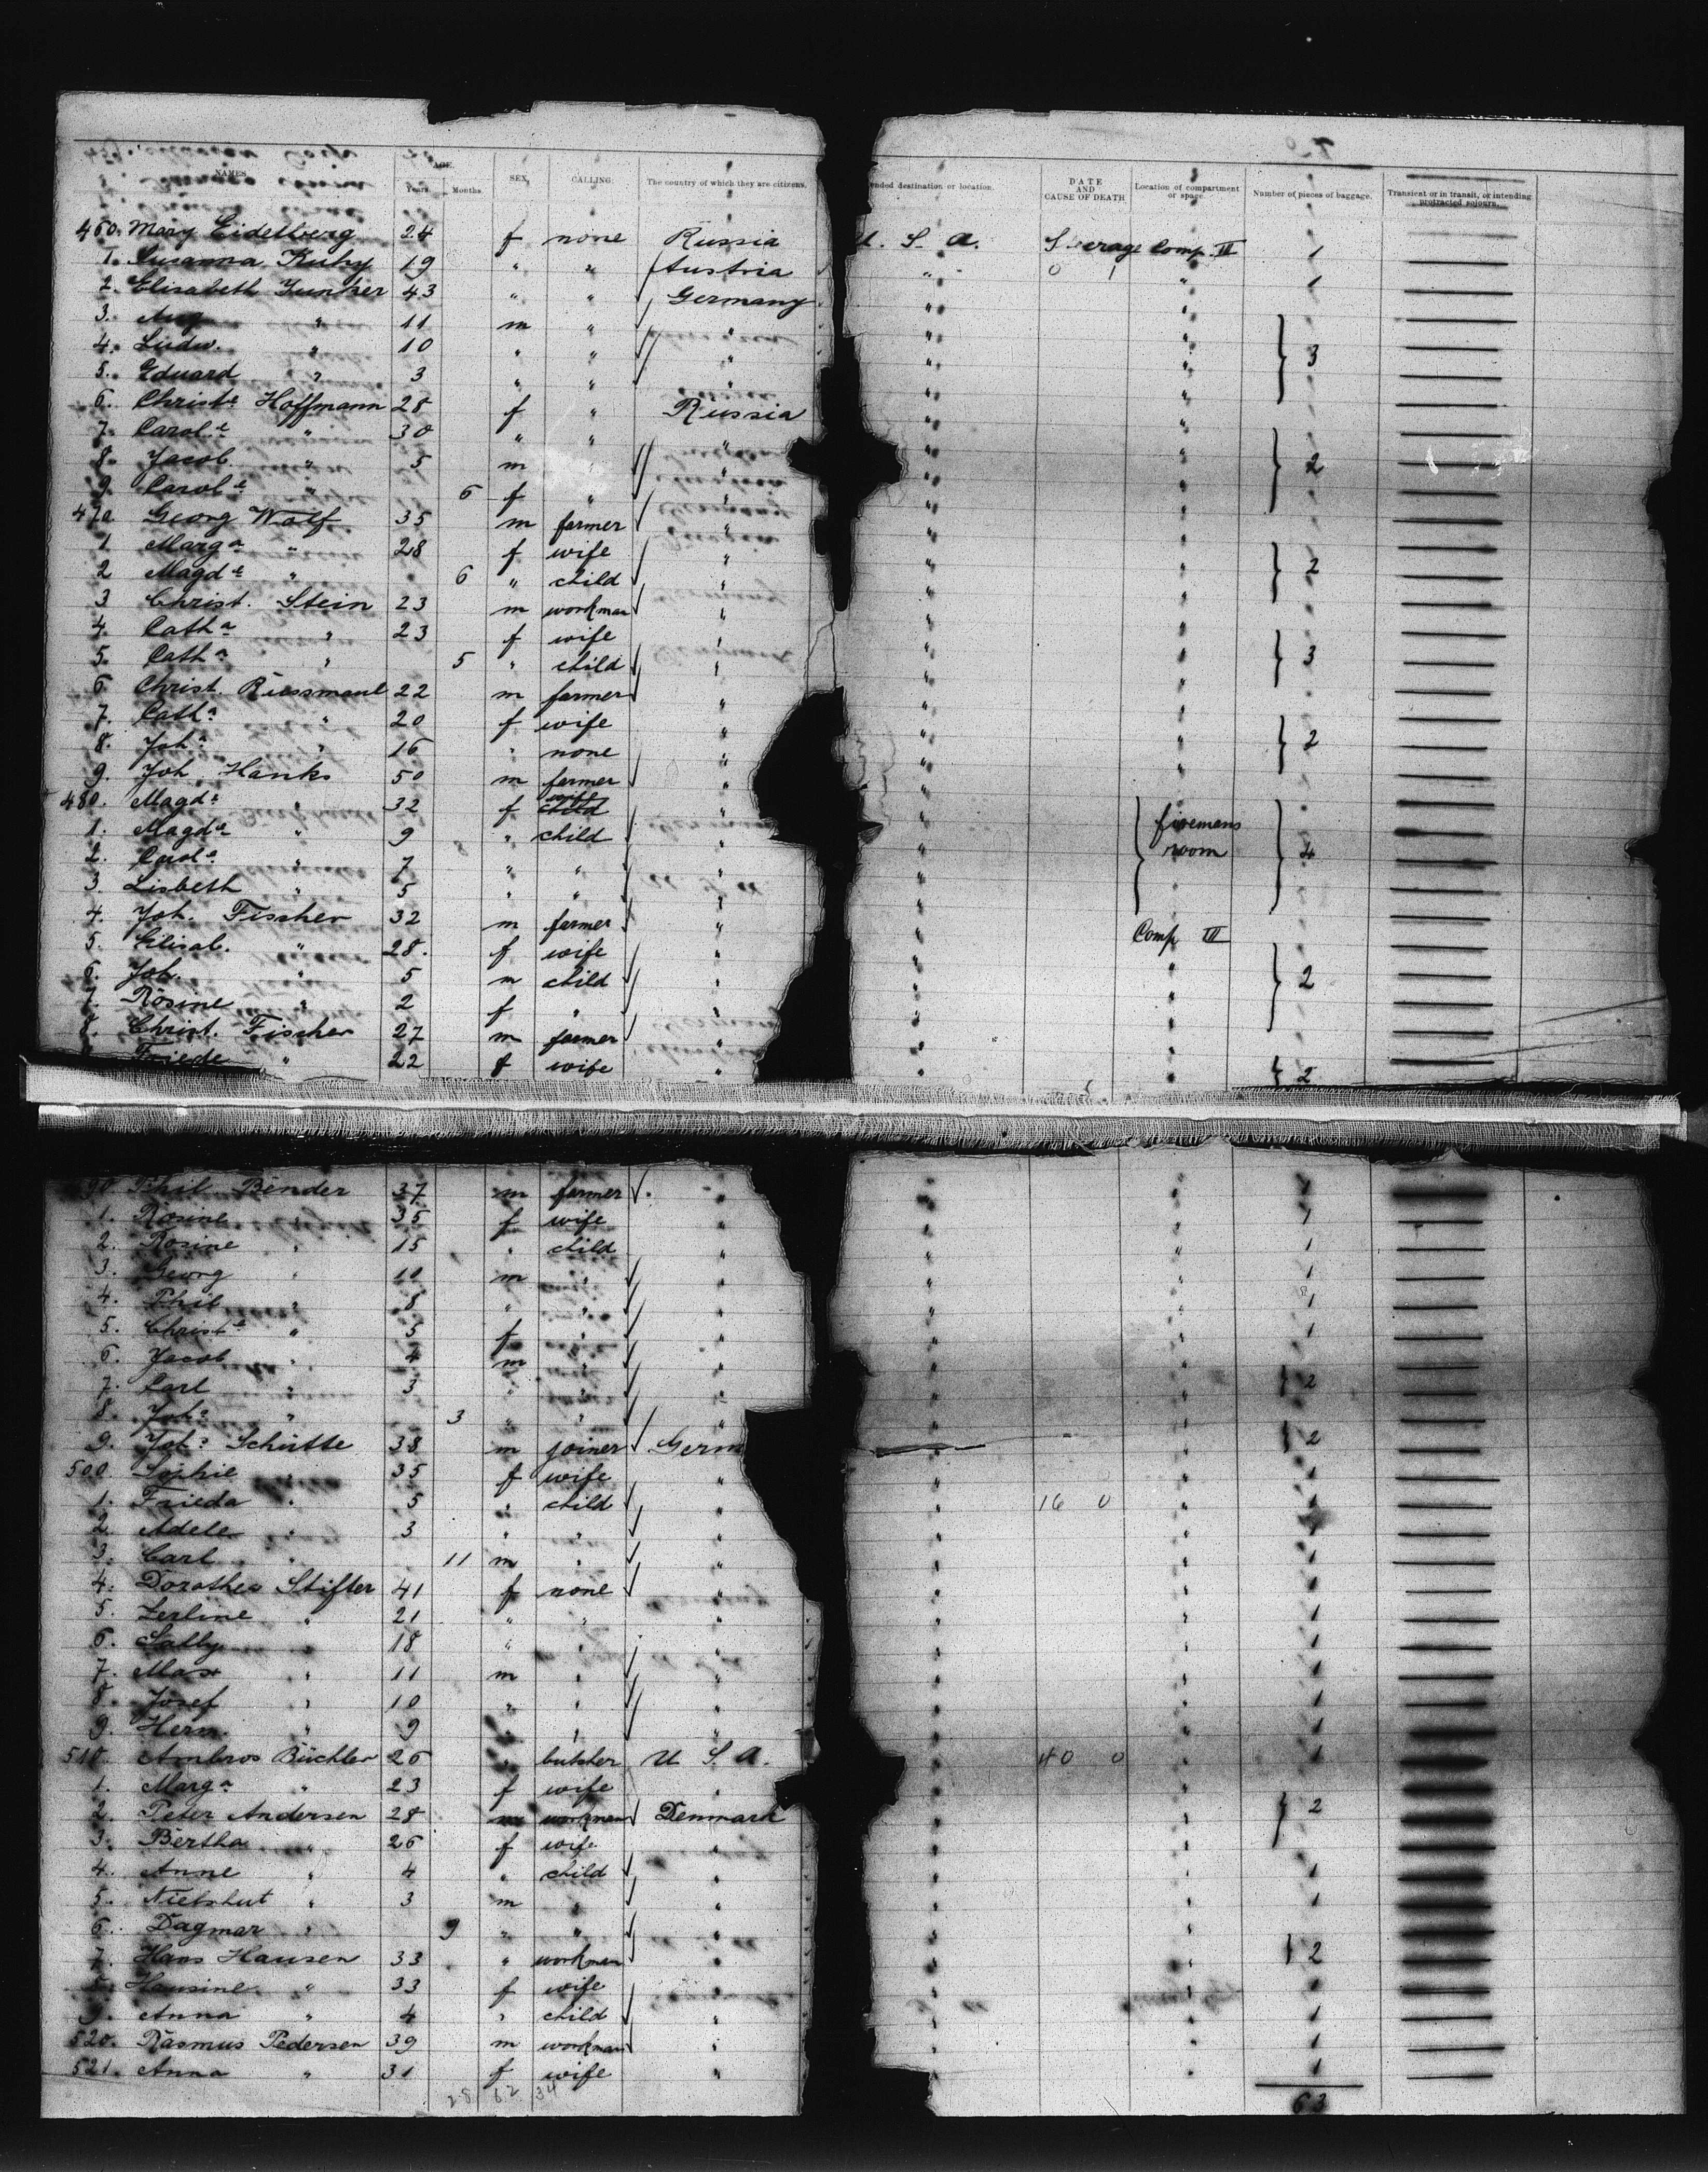 NAMES. AGE. Years. Months. SEX. CALLING. The country of which they are citizens. ended destination or location. DATE AND CAUSE OF DEATH Location of compartment or space. Number of pieces of baggage. Transient or in transit, or intending protracted sojourn.
460. Mary Eidelberg 24 f none Russia U. S. A. Steerage Comp. II 1
1. Susanna Kuhy 19 " " Austria " 0 1 " 1
2. Elisabeth Junker 43 " " Germany " "
3. Aug " 11 m " " " "
4. Ludw. " 10 " " " " " } 3
5. Eduard " 3 " " " " "
6. Christe Hoffmann 28 f " Russia " "
7. Carole " 30 " " " " "
8. Jacob " 5 m " " " " } 2
9. Carole " 6 f " " " "
470 Georg Wolf 35 m farmer " " "
1 Marga " 28 f wife " " "
2 Magde " 6 " child " " " } 2
3 Christ. Stein 23 m workman " " "
4. Catha " 23 f wife " " "
5. Catha " 5 " child " " " } 3
6 Christ. Riessmaul 22 m farmer " " "
7. Catha " 20 f wife " " "
8. Joha " 16 " none " " " } 2
9. Joh Hanks 50 m farmer " " "
480. Magda " 32 f wife child " "
1. Magda " 9 " child " " firemans
2. Carole " 7 " " " " room } 4
3. Lisbeth " 5 " " " "
4. Joh. Fischer 32 m farmer " "
5. Elisab. " 28. f wife " " Comp III
6. Joh. " 5 m child " " " } 2
7. Rosine " 2 f " " " "
8. Christ. Fischer 27 m farmer " " "
Friede " 22 f wife " " " } 2
90 Phil Bender 37 m farmer " " " 1
1. Rosine 35 f wife " " 1
2. Rosine " 15 " child " " " 1
3. Georg " 10 m " " " " 1
4. Phil " 8 " " " " " 1
5. Christe " 5 f " " " " 1
6. Jacob " 4 m " " " "
7. Carl " 3 " " " " " } 2
8. Joha " 3 " " " " "
9. Joha Schütte 38 m joiner Germ " " } 2
500. Sophie 35 f wife " " " 1
1. Frieda " 5 " child " " 16 0 " 1
2. Adele " 3 " " " " "
3. Carl " 11 m " " " " 1
4. Dorothea Stifter 41 f none " " " 1
5. Zerline " 21 " " " " " 1
6. Sally " 18 " " " " 1
7. Max " 11 m " " " " 1
8. Josef " 10 " " " " " 1
9. Herm. " 9 " " " " " 1
510. Ambros Büchler 26 " butcher U S A. " 40 0 " 1
1. Marga " 23 f wife " " "
2. Peter Andersen 28 m workman Denmark " " } 2
3. Bertha " 26 f wife " " "
4. Anne " 4 " child " " " 1
5. Nielshut " 3 m " " " " 1
6. Dagmar " 9 " " " " "
7. Hans Hansen 33 " workman " " " } 2
8. Hansine " 33 f wife " " " 1
9. Anna " 4 " child " " " 1
520. Rasmus Pedersen 39 m workman " " " 1
521. Anna " 31 f wife " " " 1
28 62 34 63